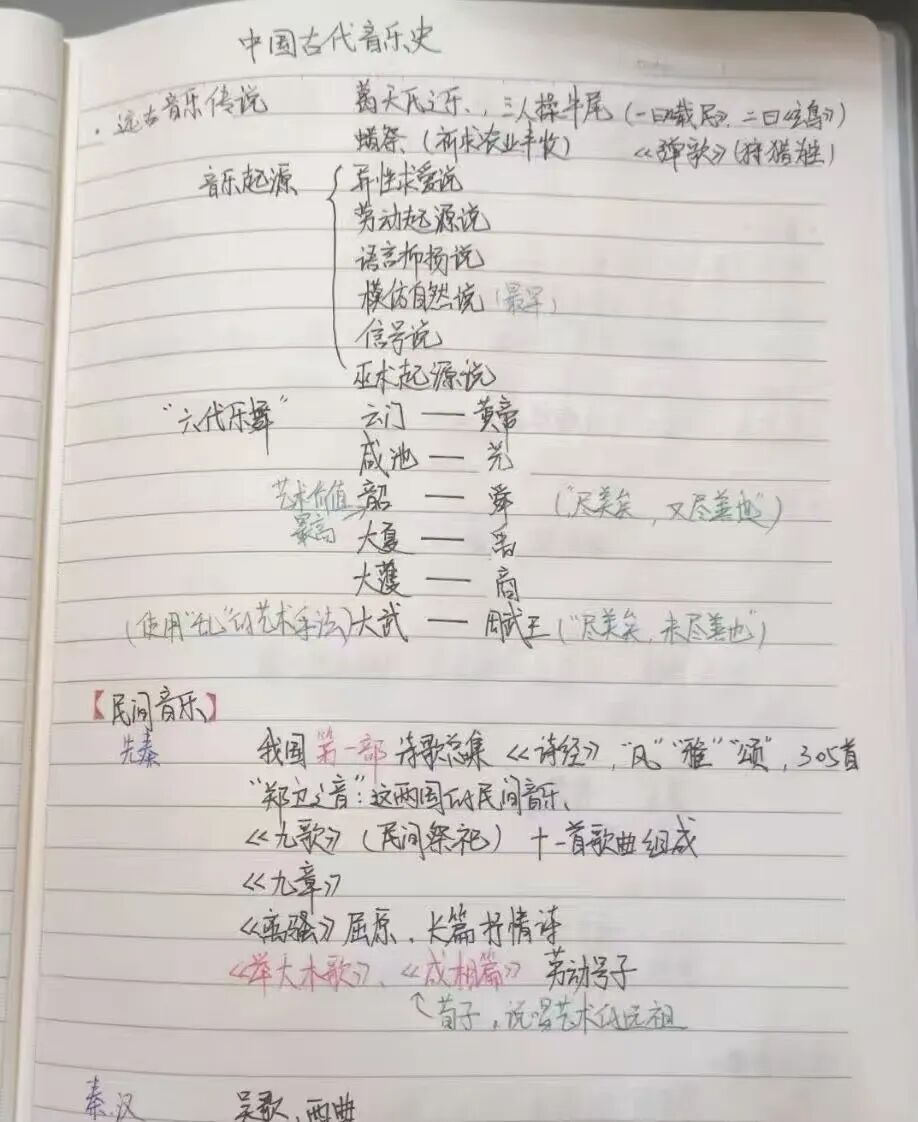 中国古代音乐史
· 远古音乐传说 葛天氏之乐、，三人操牛尾（一曰《载民》，二曰《玄鸟》）
蜡祭（祈求农业丰收） 《弹歌》（狩猎难）
音乐起源 { 异性求爱说
劳动起源说
语言抑扬说
模仿自然说（最早）
信号说
巫术起源说
“六代乐舞” 云门 — 黄帝
咸池 — 尧
艺术价值最高→ 韶 — 舜 （“尽美矣，又尽善也”）
大夏 — 禹
大濩 — 商
（使用“乱”的艺术手法）大武 — 周武王（“尽美矣，未尽善也”）
【民间音乐】
先秦 我国第一部诗歌总集《诗经》，“风”“雅”“颂”，305首
“郑卫之音”：这两国的民间音乐、
《九歌》（民间祭祀） 十一首歌曲组成
《九章》
《离骚》屈原，长篇抒情诗
《举大木歌》、《成相篇》 劳动号子
↑荀子，说唱艺术的远祖
秦、汉 吴歌、西曲